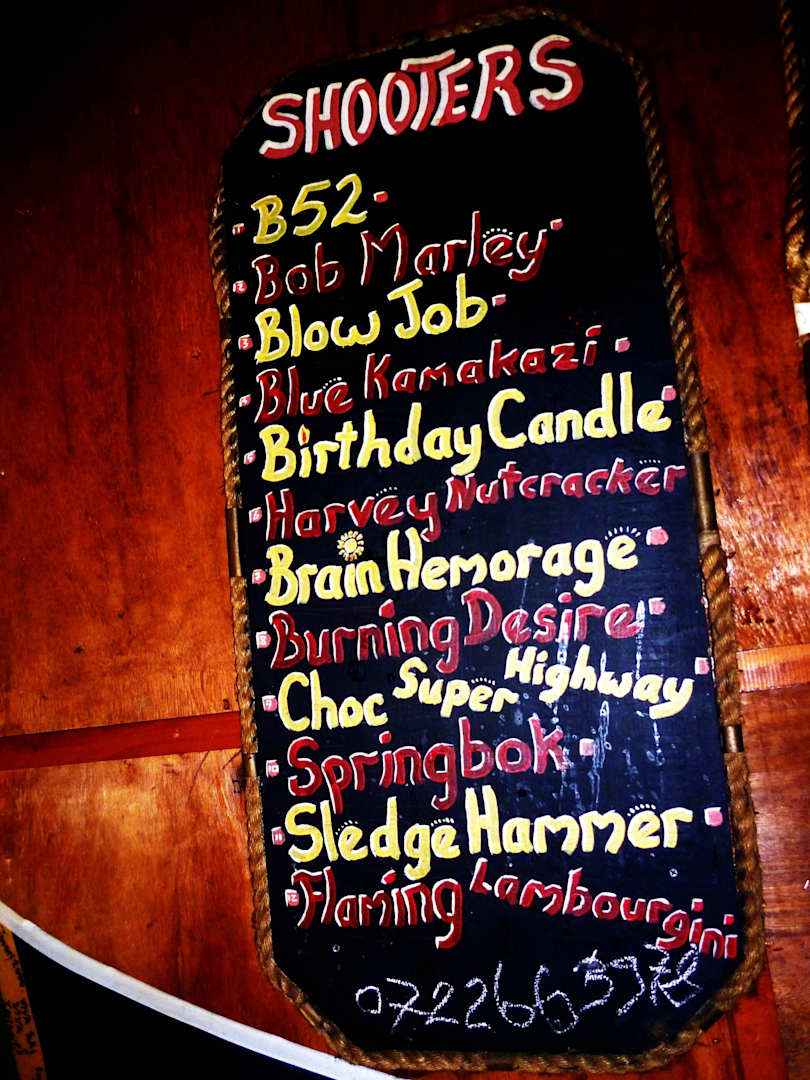 SHOOTERS
B52
2 Bob Marley
3 Blow Job
Blue Kamakazi
5 Birthday Candle
6 Harvey Nutcracker
7 Brain Hemorage
8 Burning Desire
9 Choc Super Highway
10 Springbok
11 Sledge Hammer
12 Flaming Lambourgini